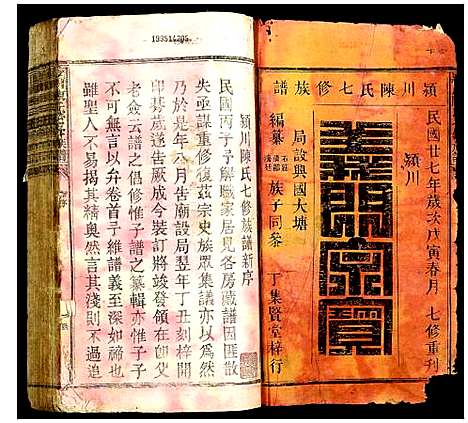 潁川陳氏七修族譜
民國廿七年歲次戊寅春月 七修重刊
潁川
局設興國大塘
編纂 族子同參
丁集賢堂梓行
193514205
潁川陳氏七修族譜新序
民國丙子予解職家居見各房藏譜因匪散
失亟謀重修復茲宗史族眾集議亦以為然
乃於是年八月告廟設局翌年丁丑刻梓開
印碁歲遂告厥成今裝訂將竣發領在卽父
老僉云譜之倡修惟子譜之纂輯亦惟子子
不可無言以弁卷首予維譜義至深如諦也
雖聖人不易揭其精奧然言其淺則不過追